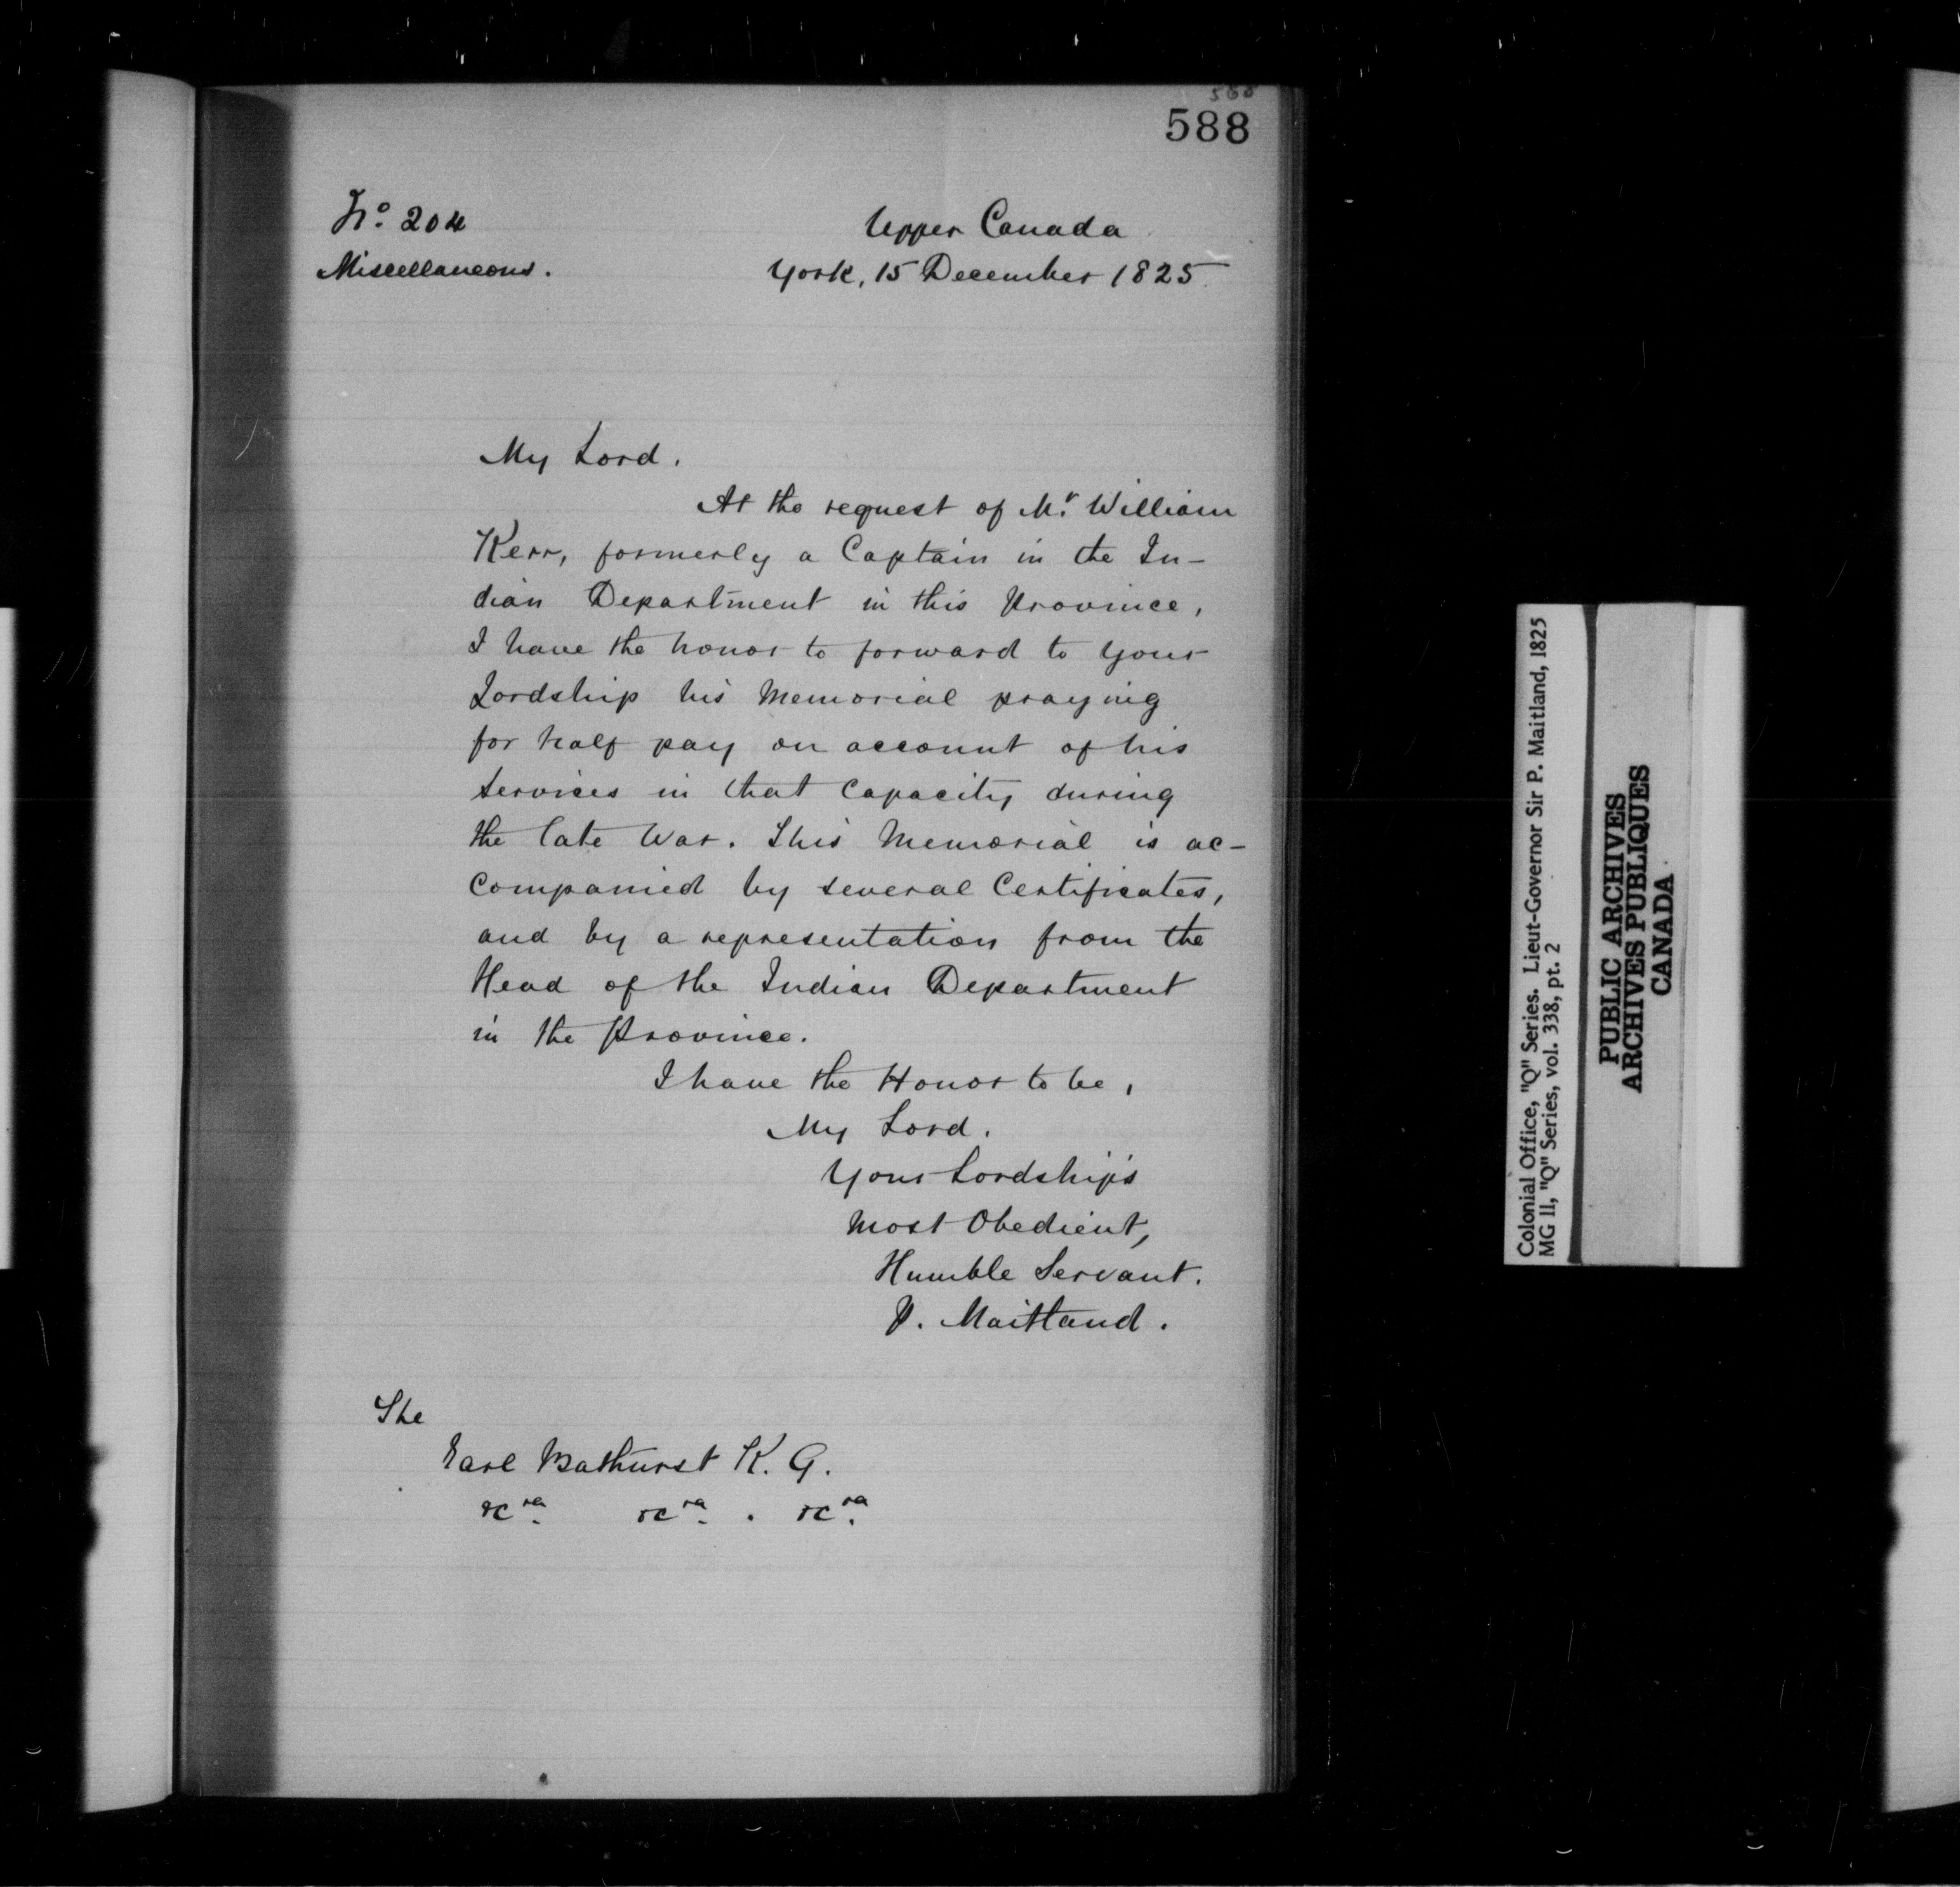 588
588
No. 204
Miscellaneous.
Upper Canada
York, 15 December 1825.
My Lord.
At the request of Mr. William
Kerr, formerly a Captain in the In-
dian Department in this Province,
I have the honor to forward to your
Lordship his Memorial praying
for half pay on account of his
services in that capacity during
the late War. This Memorial is ac-
companied by several Certificates,
and by a representation from the
Head of the Indian Department
in the Province.
I have the Honor to be,
My Lord.
Your Lordship's
Most Obedient,
Humble Servant.
P. Maitland.
The
Earl Bathurst K. G.
&cra. &cra. . &cra.
Colonial Office, "Q" Series. Lieut-Governor Sir P. Maitland, 1825
MG 11, "Q" Series, vol. 338, pt. 2
PUBLIC ARCHIVES
ARCHIVES PUBLIQUES
CANADA